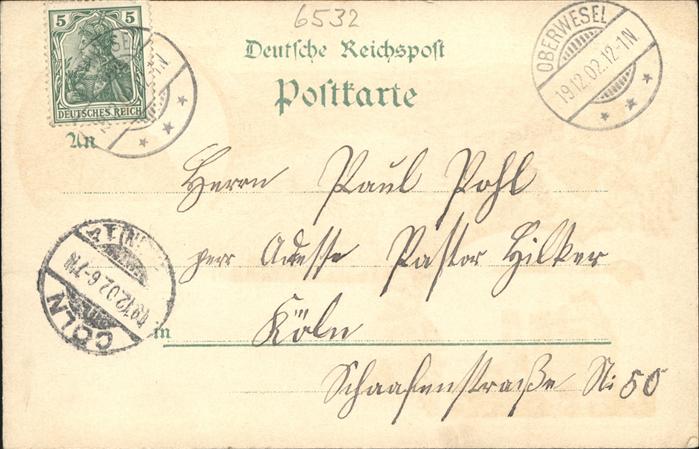 6532
5 5
DEUTSCHES REICH
Deutsche Reichspost
Postkarte
OBERWESEL
19.12.02.12-1N
An
Herrn Paul Pohl
per Adresse Pastor Hilker
CÖLN
19.12.02.6-7N
in Köln
Schaafenstraße Nr: 50